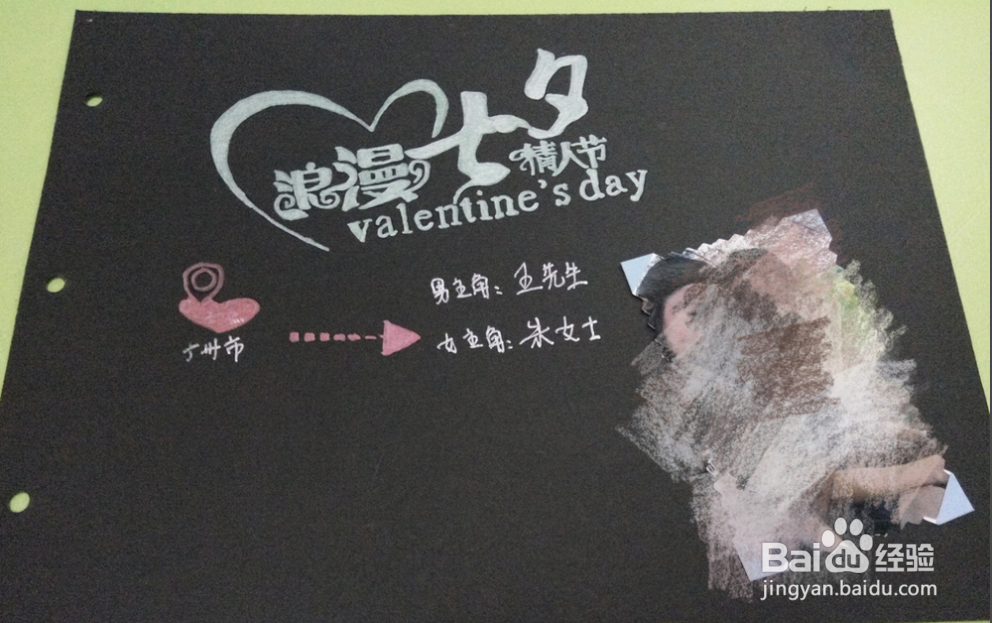 浪漫七夕
情人节
valentine's day
男主角：王先生
女主角：朱女士
广州市
Baidu经验
jingyan.baidu.com